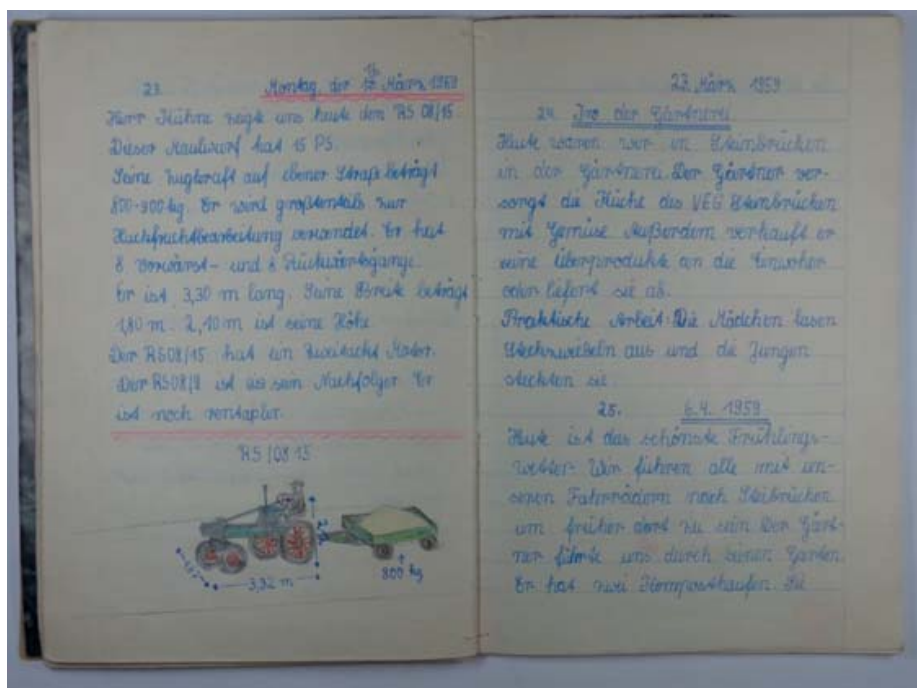 23. Montag der 16. März 1959
Herr Kühne zeigte uns heute den RS 08/15.
Dieser Maulwurf hat 15 PS.
Seine Zugkraft auf ebener Straße beträgt
800-900 kg. Er wird größtenteils zur
Hackfruchtbearbeitung verwendet. Er hat
8 Vorwärst- und 8 Rückwärtsgänge.
Er ist 3,30 m lang. Seine Breite beträgt
1,80 m. 2,10 m ist seine Höhe
Der RS08/15 hat ein Zweitackt Motor.
Der RS08/ ist sein Nachfolger Er
ist noch rentapler.
RS/08 15
3,32 m
800 kg
23. März 1959
24. In der Gärtnerei
Heute waren wir in Steinbrücken
in der Gärtnerei. Der Gärtner ver-
sorgt die Küche des VEG Steinbrücken
mit Gemüse Außerdem verkauft er
seine Überprodukte an die Einwoher
oder liefert sie ab.
Praktische Arbeit: Die Mädchen lasen
Steckzwiebeln aus und die Jungen
steckten sie.
25. 6.4. 1959
Heute ist das schönste Frühlings-
wetter. Wir fuhren alle mit un-
seren Fahrrädern nach Steibrücken
um früher dort zu sein Der Gärt-
ner führte uns durch seinen Garten.
Er hat zwei Komposthaufen. Sie